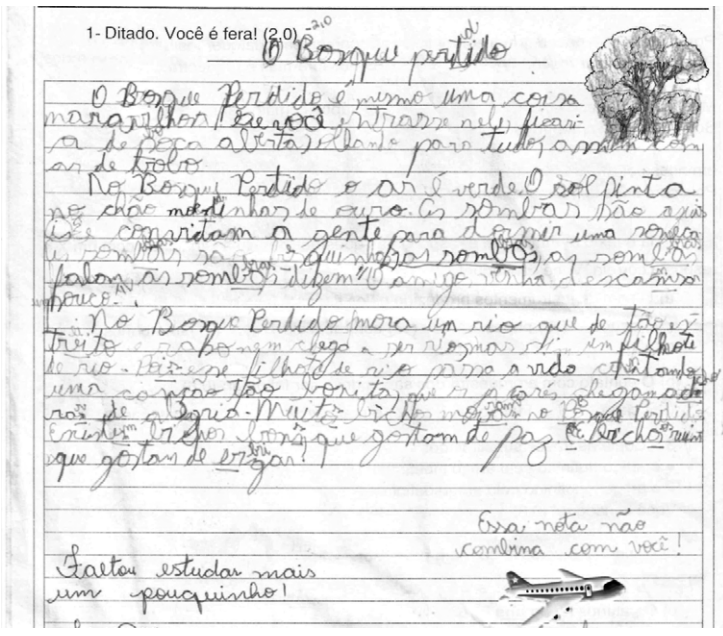 1- Ditado. Você é fera! (2,0) -2,0
O Bosque pertido
O Bosque Perdido é mesmo uma coisa
maravilhosa se você entrasse nele, ficari-
a de boca aberta, olhando para tudo, assim com
ar de trobo.
No Bosque Perdido o ar é verde. O sol pinta
no chão moedinhas de ouro. As sombras são azu
is e convidam a gente para dormir uma soneca
as sombras são fas sombas, as sombas
falam as sombas dizem "O amigo venha descansa
pouco.
No Bosque Perdido mora um rio que de tão es
treito e raso nem chega a ser rio, mas sim um filhote
de rio. Pois esse filhote de rio passa a vida cantando
uma canção tão bonita, que os jacarés chegam a ch
de alegria. Muitos bichos moram no Bosque Perdido
Existem bichos bons, que gostam de paz e bichos ruins
que gostam de brigar!
Essa nota não
combina com você!
Faltou estudar mais
um pouquinho!